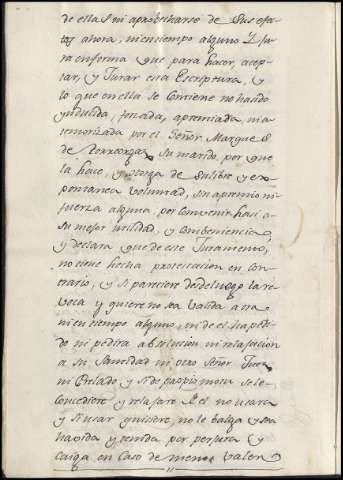 de ella Sni aprobecharse de Sus efe
tos ahora, ni en tiempo alguno Y Ju
ra en forma que para hacer, acep
tar, y Jurar esta Escriptura, y
lo que en ella se Contiene no ha sido
ynducida, forzada, apremiada, ni a
temorizada por el Señor Marques
de su marido, por que
la hace, y otorga de su libre y ex
pontanea voluntad, sin apremio ni
fuerza alguna, por convenir hasi a
su mejor utilidad, y Combeniencia,
y declara que de este Juramento,
no tiene hecha protextacion en Con
trario, y si pareciere desde luego la re
voca y quiere no sea valida a ra
ni en tiempo alguno, ni de el ha pedi
do ni pedira absolucion, ni relajacion
a su Santidad ni otro Señor Juez
ni Prelado, y si de propio motu se le
Concediere y relajare de el no usara
y si usar quisiere, no le balga y sea
havida y tenida por perjura y
Caiga en Caso de menos valer